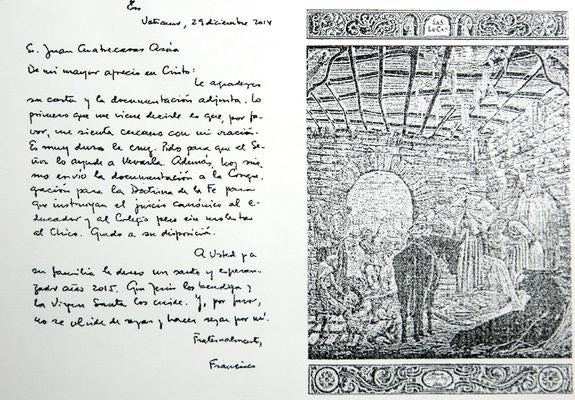 Vaticano, 29 diciembre 2014
S. Juan Cuatrecasas Asúa
De mi mayor aprecio en Cristo:
Le agradezco
su carta y la documentación adjunta. Lo
primero que me viene decirle es que, por fa-
vor, me sienta cercano con mi oración.
Es muy dura la cruz. Pido para que el Se-
ñor lo ayude a llevarla. Además, hoy mis-
mo envió la documentación a la Congre-
gación para la Doctrina de la Fe para
que instruyan el juicio canónico al e-
ducador y al Colegio pero sin molestar
al Chico. Quedo a su disposición.
A Usted y a
su familia le deseo un santo y esperan-
zado año 2015. Que Jesús los bendiga y
la Virgen Santa los cuide. Y, por favor,
no se olvide de rezar y hacer rezar por mí.
Fraternalmente,
Francisco
SAS
LUCAS